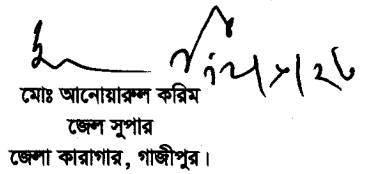 মোঃ আনোয়ারুল করিম
জেল সুপার
জেলা কারাগার, গাজীপুর।